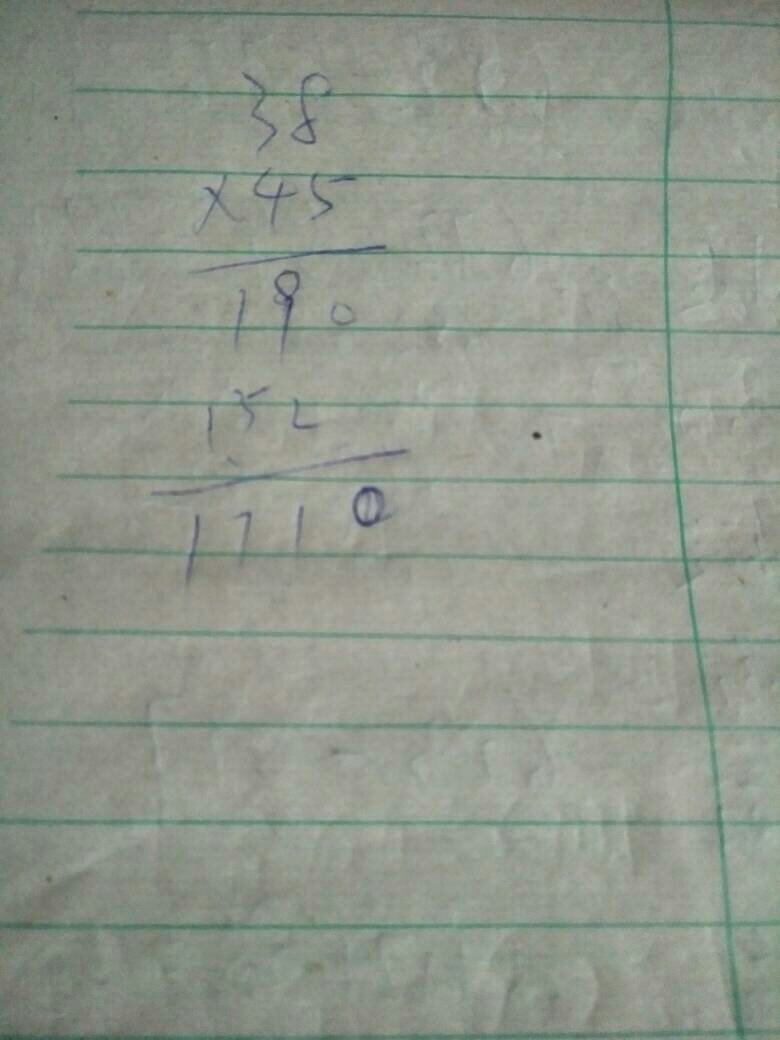 38
×45
190
152
1710